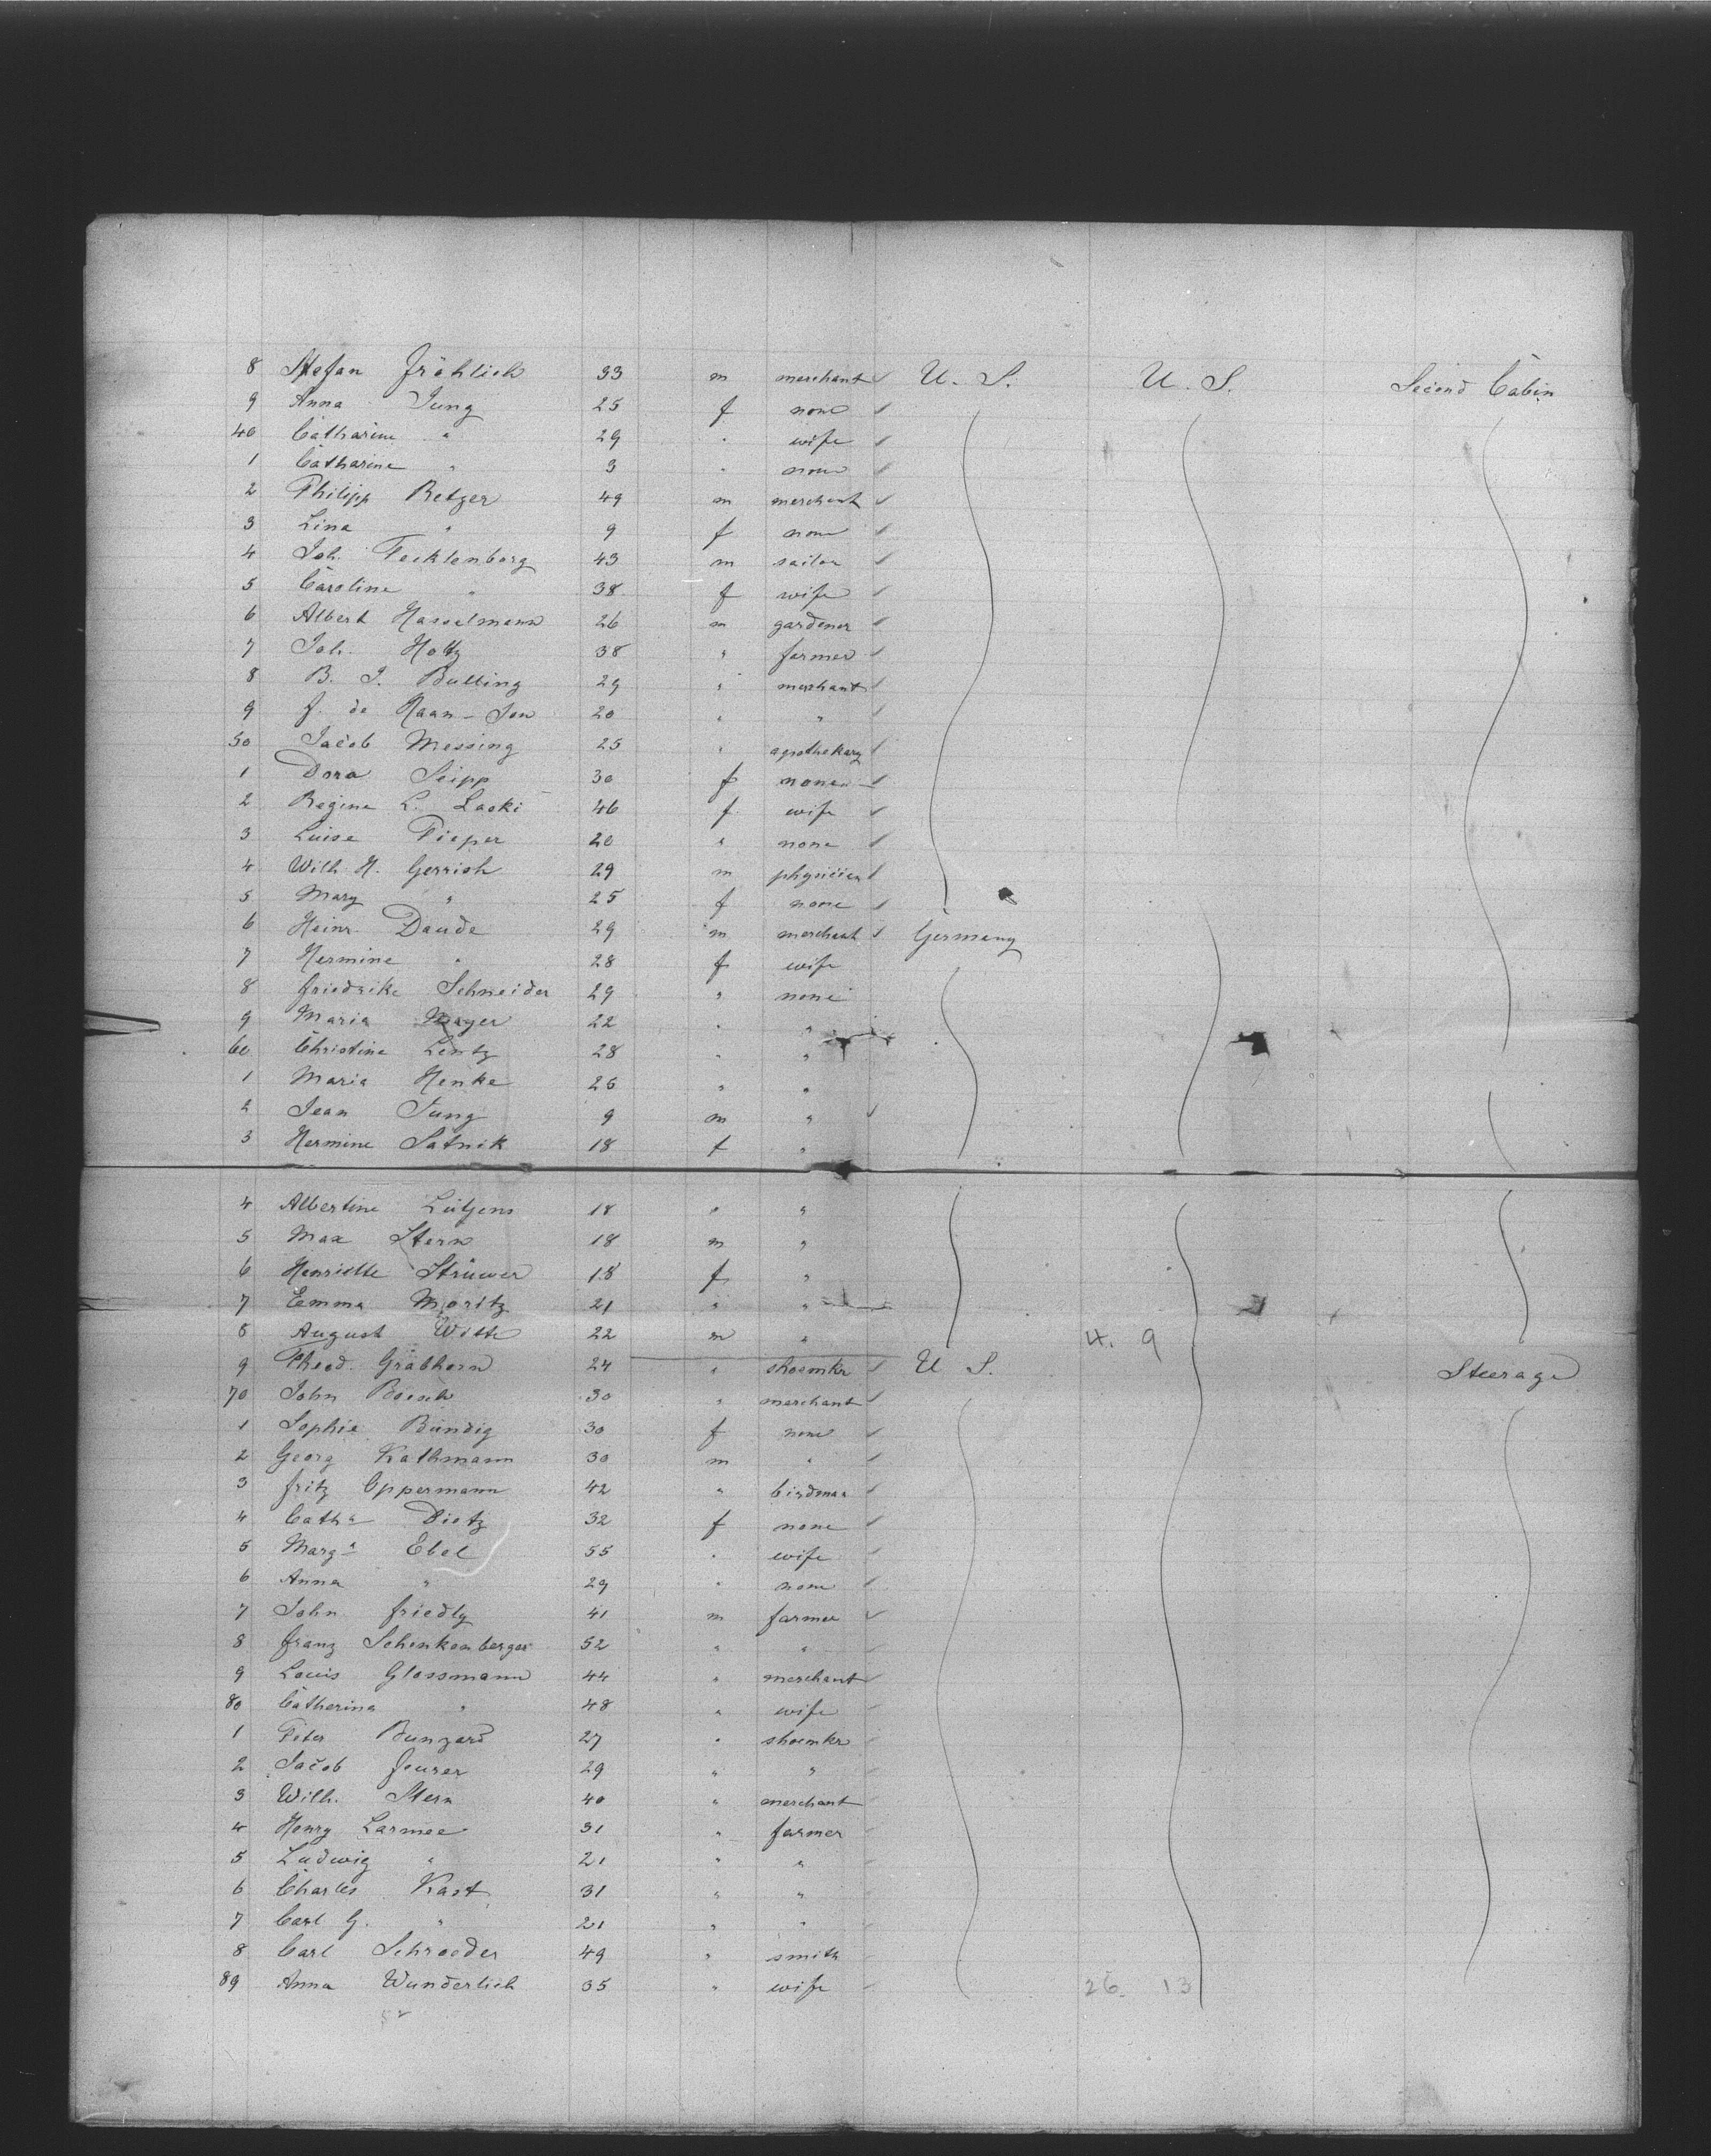 8 Stefan Fröhlich 33 m merchant U. S. U. S. Second Cabin
9 Anna Jung 25 f none
40 Catharine " 29 " wife
1 Catharine " 3 " none
2 Philipp Retzer 49 m merchant
3 Lina " 9 f none
4 Joh. Tecklenborg 43 m sailor
5 Caroline " 38 f wife
6 Albert Hasselmann 26 m gardener
7 Joh. Holtz 38 " farmer
8 B. J. Bulling 29 " merchant
9 J. de Haan-Son 20 " "
50 Jacob Messing 25 " apothekary
1 Dora Seipp 30 f none
2 Regine L. Laski 46 f wife
3 Luise Pieper 20 " none
4 Wilh. H. Gerrish 29 m physician
5 Mary " 25 f none
6 Heinr. Daude 29 m merchant Germany
7 Hermine " 28 f wife
8 Friedrike Schneider 29 " none
9 Maria Mayer 22 " "
60 Christine Lentz 28 " "
1 Maria Henke 26 " "
2 Jean Jung 9 m "
3 Hermine Satnik 18 f "
4 Albertine Lütjens 18 " "
5 Max Stern 18 m "
6 Henriette Strüwer 18 f "
7 Emma Moritz 21 " "
8 August Witte 22 m " 4. 9
9 Theod. Grabhorn 24 " shoemkr U S. Steerage
70 John Boesch 30 " merchant
1 Sophie Bündig 30 f none
2 Georg Kathmann 30 m "
3 Fritz Oppermann 42 " birdman
4 Cath.a Dietz 32 f none
5 Marg.a Ebel 55 " wife
6 Anna " 29 " none
7 John Friedly 41 m farmer
8 Franz Schenkenberger 52 " "
9 Louis Glassmann 44 " merchant
80 Catherina " 48 " wife
1 Peter Bungard 27 " shoemkr
2 Jacob Feurer 29 " "
3 Wilh. Stern 40 " merchant
4 Henry Larmee 31 " farmer
5 Ludwig " 21 " "
6 Charles Kast 31 " "
7 Carl G. " 21 " "
8 Carl Schroeder 49 " smith
89 Anna Wunderlich 35 " wife 26. 13